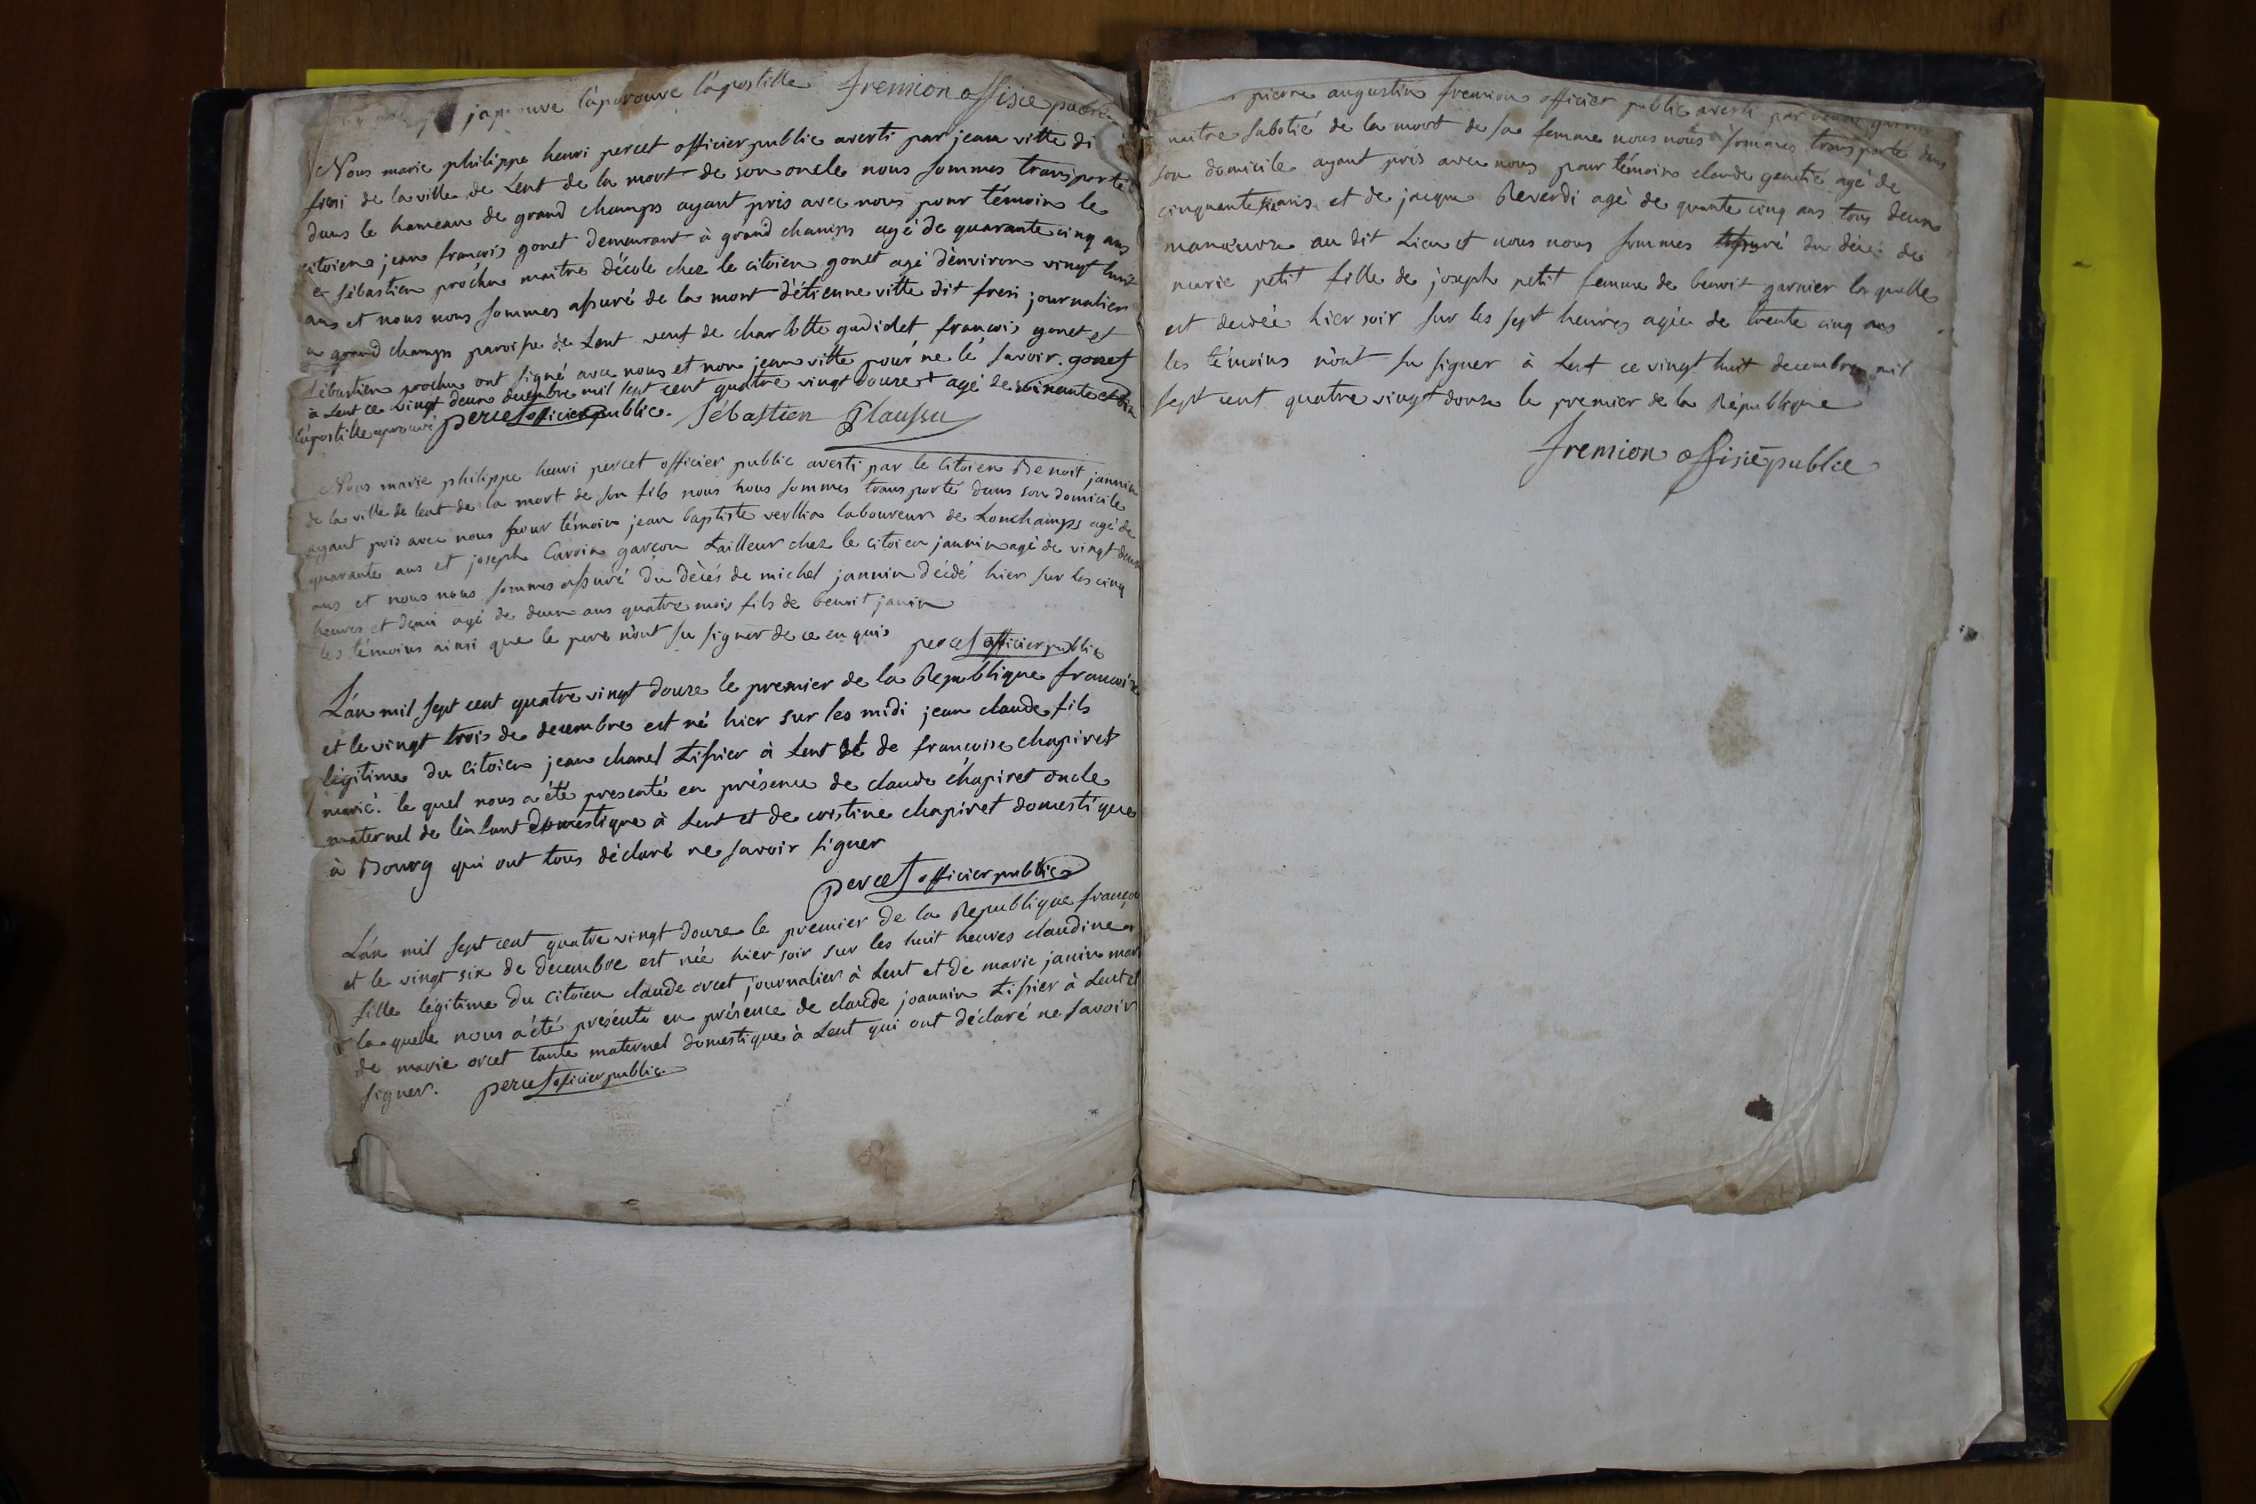 japrouve l'aprouve l'apostille fremion offisié publce
Nous marie philippe henri percet officier public averti par jean vitte di
freri de la ville de Lent de la mort de son oncle nous sommes transporté
dans le hameau de grand champs ayant pris avec nous pour témoin le
citoien jean françois gonet demeurant à grand champs agé de quarante cinq ans
et sébastien prochu maitre d'école chez le citoien gonet agé d'environ vingt huit
ans et nous nous sommes assuré de la mort d'étienne vitte dit freri journalier
a grand champs paroisse de Lent veuf de charlotte gudidet françois gonet et
sébastien prochu ont signé avec nous et non jean vitte pour ne le savoir. gonet
à Lent ce vingt deux decembre mil sept cent quatre vingt douze + agé de soixante et dix
l'apostille aprouvé percet officier public. Sébastien
Nous marie philippe henri percet officier public averti par le citoien Benoit jannin
de la ville de lent de la mort de son fils nous nous sommes transporté dans son domicile
ayant pris avec nous pour témoin jean baptiste verllia laboureur de Lonchamps agé de
quarante ans et joseph Carrin garçon tailleur chez le citoien jannin agé de vingt deux
ans et nous nous sommes assuré du décés de michel jannin décédé hier sur les cinq
heures et demi agé de deux ans quatre mois fils de benoit janin
les témoins ainsi que le pere n'ont su signer de ce enquis percet officier public
L'an mil sept cent quatre vingt douze le premier de la Republique françoise
et le vingt trois de decembre est né hier sur les midi jean claude fils
légitime du citoien jean chanel tissier à Lent et de françoise chapiret
marié. le quel nous a été presenté en présence de claude chapiret oncle
maternel de l'enfant domestique à Lent et de cristine chapiret domestique
à Bourg qui ont tous déclaré ne savoir signer
percet officier public
L'an mil sept cent quatre vingt douze le premier de la Republique françoise
et le vingt six de decembre est née hier soir sur les huit heures claudine
fille légitime du citoien claude orcet journalier à Lent et de marie janin mar
la quelle nous a été présenté en présence de claude joannin tissier à Lent et
de marie orcet tante maternel domestique à Lent qui ont déclaré ne savoir
signer. percet officier public
pierre augustin fremion officier public averti par benoit garnier
maitre sabotié de la mort de sa femme nous nous sommes transporté dans
son domicile ayant pris avec nous pour témoin claude gentie agé de
cinquante ans et de jacque Reverdi agé de quarante cinq ans tous deux
manœuvre au dit Lieu et nous nous sommes assuré du décé de
marie petit fille de joseph petit femme de benoit garnier la quelle
est decedée hier soir sur les sept heures agée de trente cinq ans
les témoins n'ont su signer à Lent ce vingt huit decembre mil
sept cent quatre vingt douze le premier de la République
fremion offisié publce